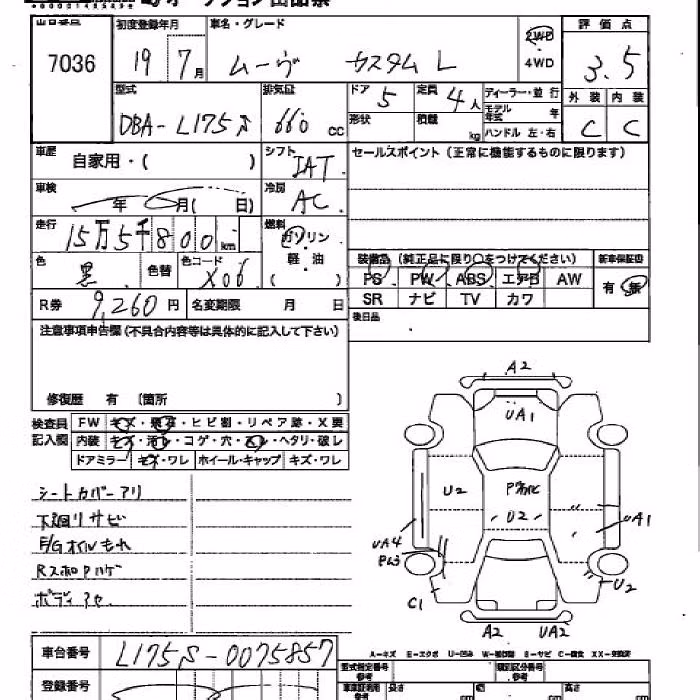 初度登録年月 車名・グレード 評価点
7036 19 7月 ムーヴ カスタム L 2WD 4WD 3.5
型式 排気量 ドア 5 定員 4人 ディーラー・並行 外装 内装
DBA-L175S 660 cc 形状 積載 kg モデル年式 年 ハンドル 左・右 C C
車歴 自家用・( ) シフト IAT セールスポイント(正常に機能するものに限ります)
車検 年 月( 日) 冷房 AC
走行 15万5千800km 燃料 ガソリン
軽・油 ( 装備品(純正品に限り○をつけてください) 新車保証書
色 黒 色替 色コード X06 PS PW ABS エアB AW 有 無
R券 9,260円 名変期限 月 日 SR ナビ TV カワ
注意事項申告欄(不具合内容等は具体的に記入して下さい) 後日品
修復歴 有 (箇所 )
検査員 FW キズ・飛石・ヒビ割・リペア跡・X要
記入欄 内装 キズ・汚れ・コゲ・穴・スレ・ヘタリ・破レ
ドアミラー キズ・ワレ ホイール・キャップ キズ・ワレ
A2
UA1
シートカバーアリ
下廻リサビ
E/Gオイルもれ
RスポPハゲ
U2
U2
UA1
UA4
U2
C1
A2 UA2
車台番号 L175S-0075857
A-キズ E-エクボ U-凹み S-サビ C-腐食 XX-交換済
登録番号 型式指定番号 類別区分番号
長さ cm 幅 cm 高さ cm